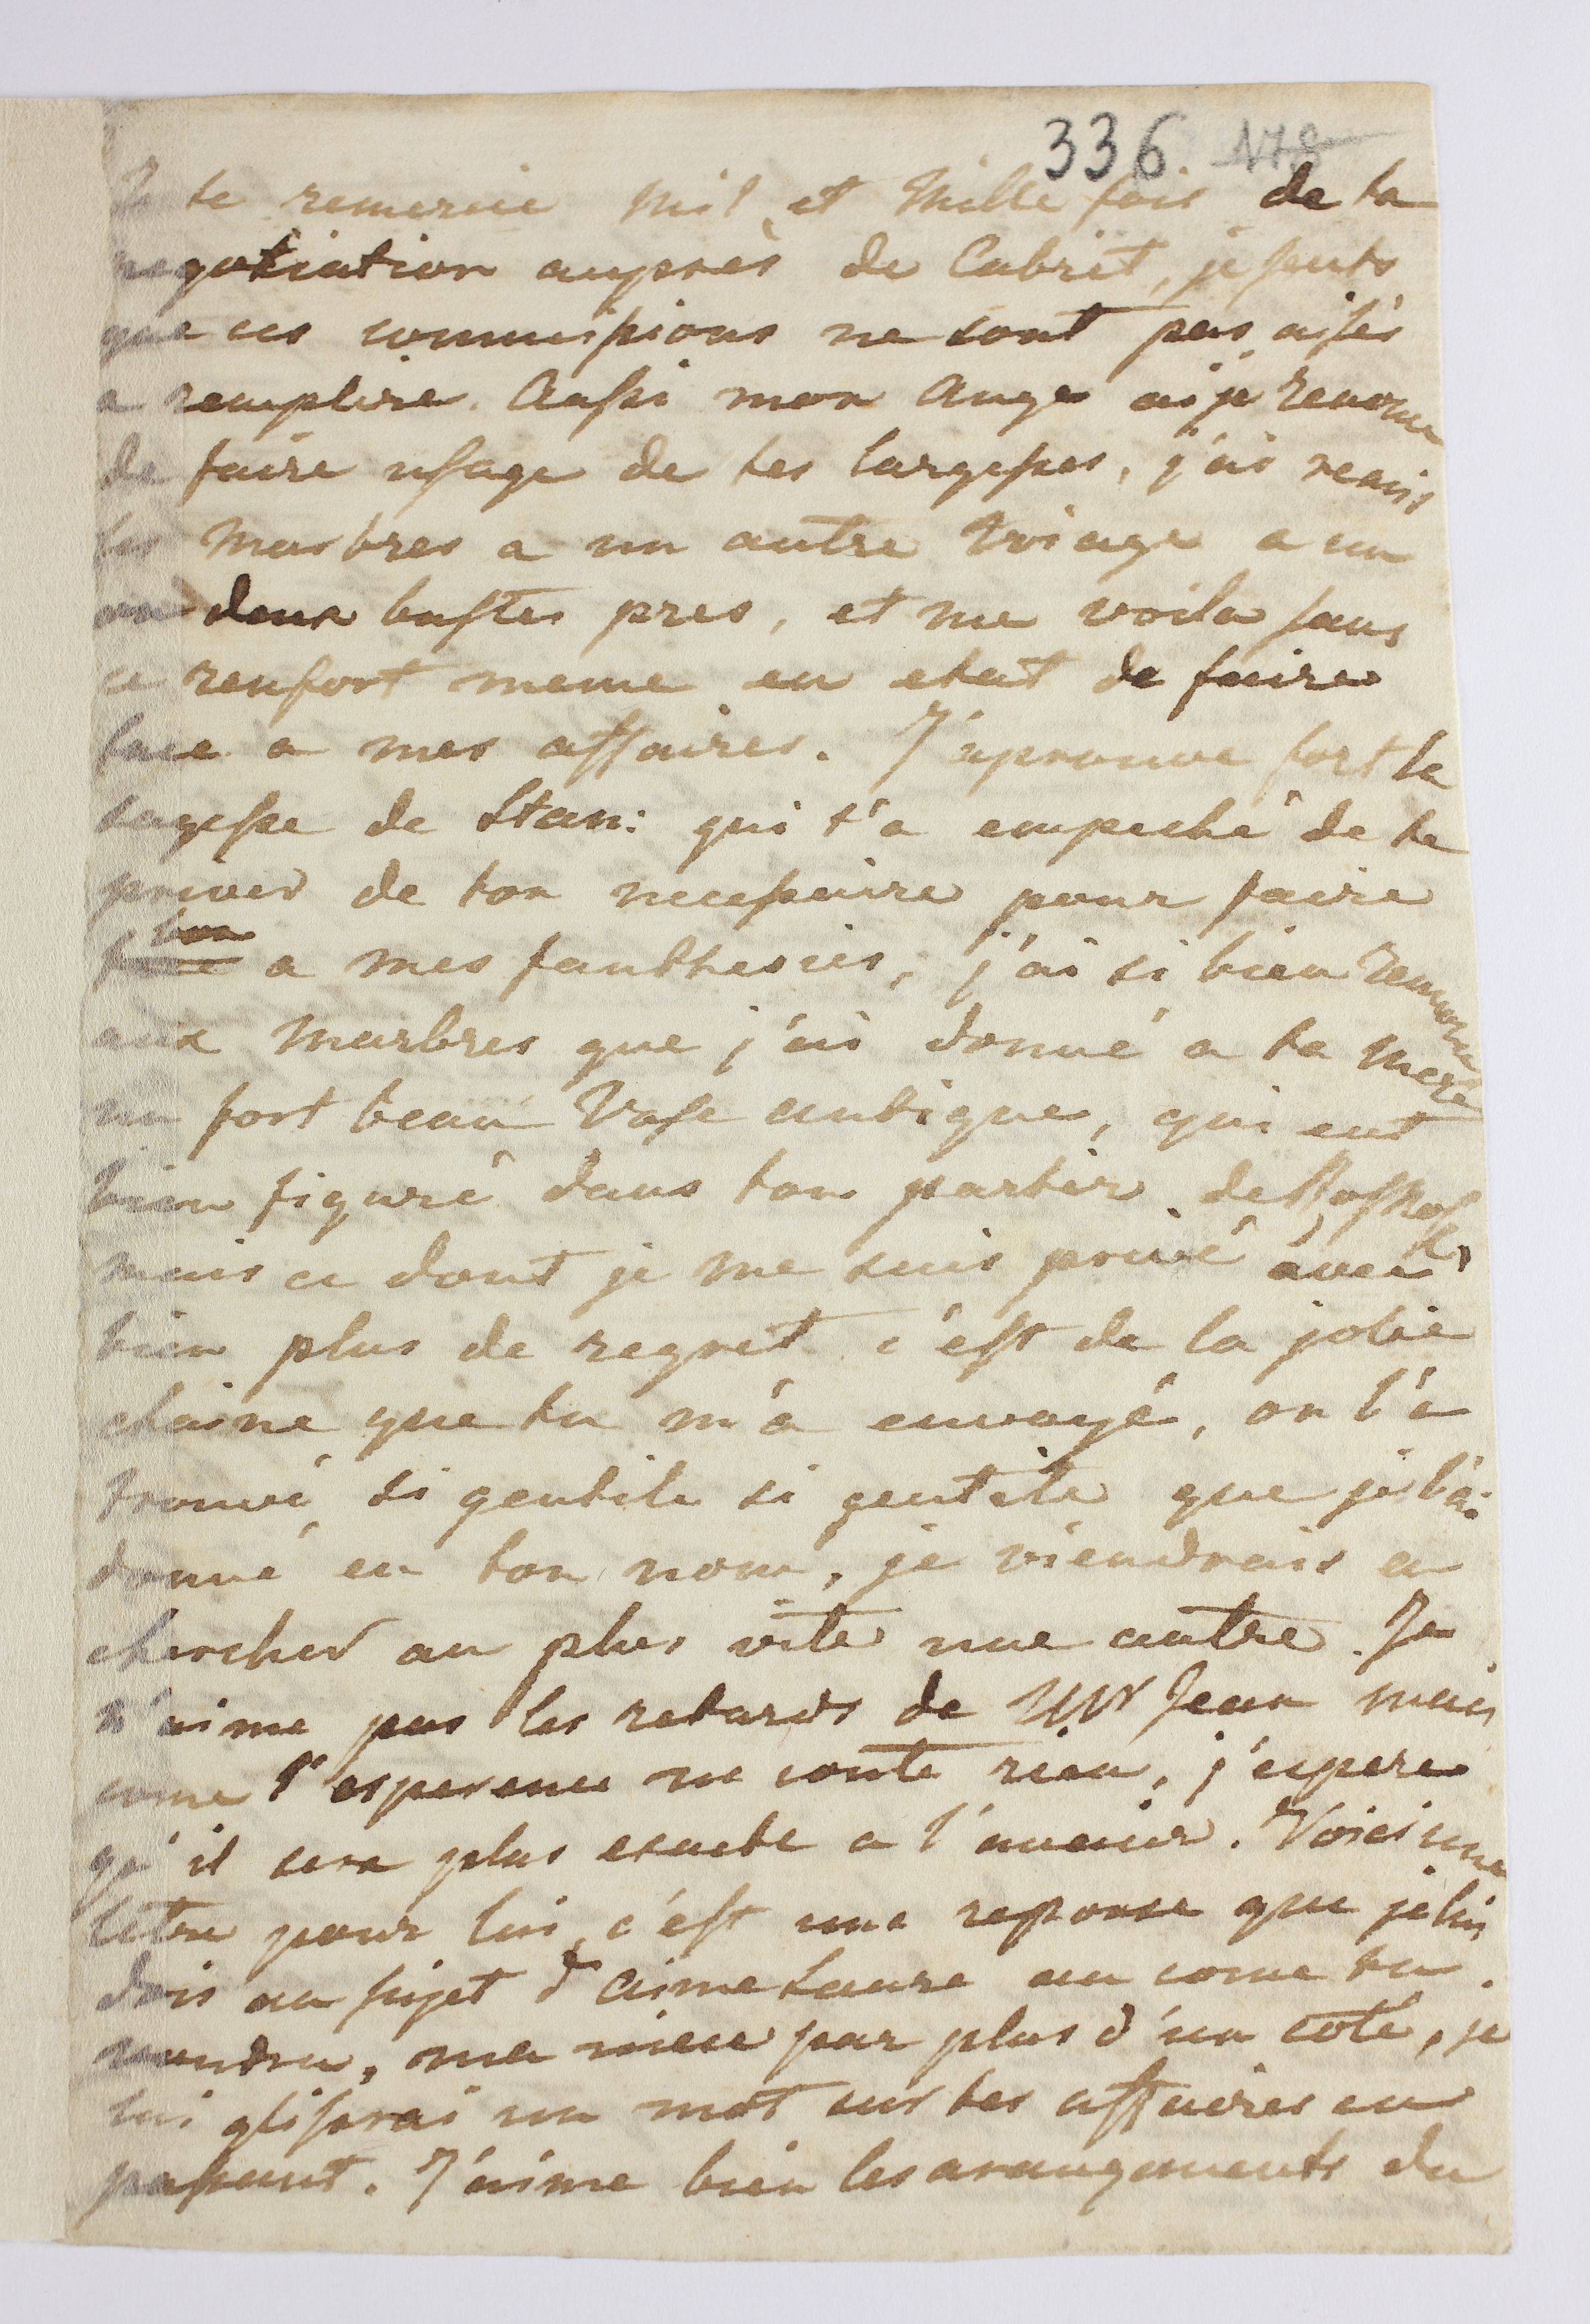 336. 178
Je te remercie mil et mille fois de ta
negotiation auprès de Cabrit, je sents
que ces commissions ne sont pas aisés
a remplire. Aussi mon Ange ai je renoncé
de faire usage de tes largesses, j'ai remis
les marbres a un autre voiage a un
ou deux bustes pres, et me voila sans
ce renfort meme en etat de faire
face a mes affaires. J'aprouve fort la
sagesse de Stan: qui t'a empeché de te
priver de ton necessaire pour faire
bon
face a mes fanthesies, j'ai si bien renoncé
aux marbres que j'ai donné a ta mere
un fort beau Vase antique, qui eut
bien figuré dans ton parter de
mais ce dont je me suis privé avec
bien plus de regret c'est de la jolie
chaine que tu m'a envoyé, on l'a
trouvé si gentile si gentile que je l'ai
donné en ton nom, je viendrais en
chercher au plus vite une autre. Je
n'aime pas les retards de Mr Jean mais
come l'esperence ne conte rien, j'espere
qu'il sera plus exacte a l'avenir. Voici une
lettre pour lui, c'est une reponse que je lui
dois au sujet d'
voudra, ma niece par plus d'un coté, je
lui glisserai un mot sur tes affaires en
passant. J'aime bien les arangements du